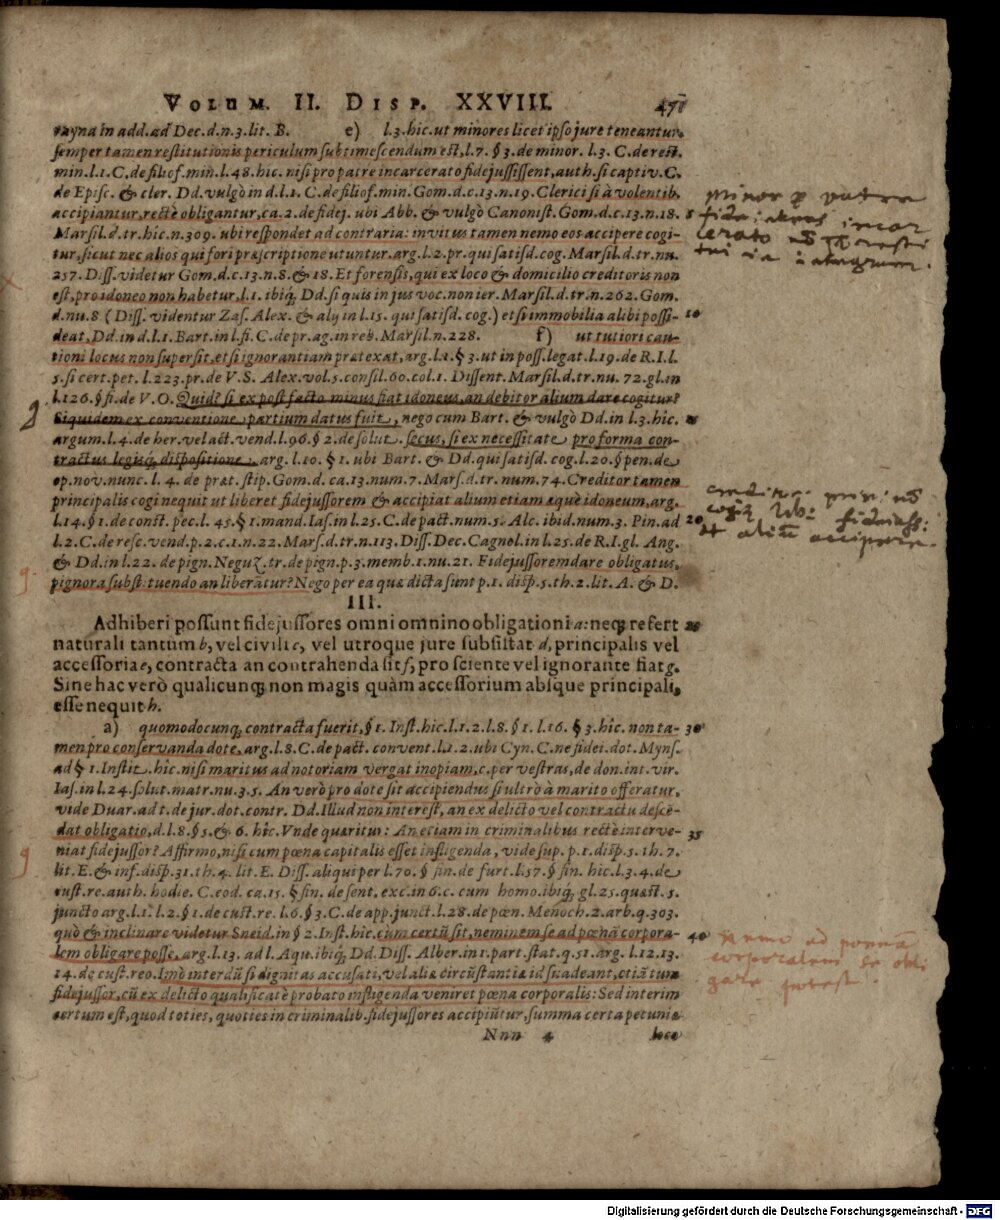 VOLUM. II. DISP. XXVIII. 471
rayna in add. ad Dec. d. n. 3. lit. B. e) l. 3. hîc. ut minores licet ipso jure teneantur,
semper tamen restitutionis periculum subtimescendum est, l. 7. § 3. de minor. l. 3. C. de rest.
min. l. 1. C. de filiof. min. l. 48. hîc. nisi pro patre incarcerato fidejussissent, auth. si captiv. C.
de Episc. & cler. Dd. vulgò in d. l. 1. C. de filiof. min. Gom. d. c. 13. n. 19. Clerici si à volentib.
accipiantur, rectè obligantur, ca. 2. de fidej. ubi Abb. & vulgò Canonist. Gom. d. c. 13. n. 18. 5
Marsil. d. tr. hîc. n. 309. ubi respondet ad contraria: invitus tamen nemo eos accipere cogi-
tur, sicut nec alios qui fori præscriptione utuntur. arg. l. 2. pr. qui satisd. cog. Marsil. d. tr. nu.
257. Diss. videtur Gom. d. c. 13. n. 8. & 18. Et forensis, qui ex loco & domicilio creditoris non
est, pro idoneo non habetur, l. 1. ibiq; Dd. si quis in jus voc. non ier. Marsil. d. tr. n. 262. Gom.
d. nu. 8 (Diss. videntur Zas. Alex. & alij in l. 15. qui satisd. cog.) et si immobilia alibi possi- 10
deat, Dd. in d. l. 1. Bart. in l. fi. C. de pr. ag. in reb. Marsil. n. 228. f) ut tutori cau-
tioni locus non supersit, et si ignorantiam prætexat, arg. l. 1. § 3. ut in poss. legat. l. 19. de R. I. l.
5. si cert. pet. l. 223. pr. de V. S. Alex. vol. 5. consil. 60. col. 1. Dissent. Marsil. d. tr. nu. 72. gl. in
l. 126. § fi. de V. O. Quid? si ex post facto minus fiat idoneus, an debitor alium dare cogitur?
Siquidem ex conventione partium datus fuit, nego cum Bart. & vulgò Dd. in l. 3. hîc. 15
argum. l. 4. de her. vel act. vend. l. 96. § 2. de solut. secus, si ex necessitate pro forma con-
tractus legisq; dispositione, arg. l. 10. § 1. ubi Bart. & Dd. qui satisd. cog. l. 20. § pen. de
op. nov. nunc. l. 4. de præt. stip. Gom. d. ca. 13. num. 7. Mars. d. tr. num. 74. Creditor tamen
principalis cogi nequit ut liberet fidejussorem & accipiat alium etiam æquè idoneum, arg.
l. 14. § 1. de const. pec. l. 45. § 1. mand. Ias. in l. 25. C. de pact. num. 5. Alc. ibid. num. 3. Pin. ad 20
l. 2. C. de resc. vend. p. 2. c. 1. n. 22. Mars. d. tr. n. 113. Diss. Dec. Cagnol. in l. 25. de R. I. gl. Ang.
& Dd. in l. 22. de pign. Neguz. tr. de pign. p. 3. memb. 1. nu. 21. Fidejussorem dare obligatus,
pignora substituendo an liberatur? Nego per ea quæ dicta sunt p. 1. disp. 5. th. 2. lit. A. & D.
III.
Adhiberi possunt fidejussores omni omnino obligationi a: neq; refert 25
naturali tantum b, vel civili c, vel utroque jure subsistat d, principalis vel
accessoria e, contracta an contrahenda sit f, pro sciente vel ignorante fiat g.
Sine hac verò qualicunq; non magis quàm accessorium absque principali,
esse nequit h.
a) quomodocunq; contracta fuerit, § 1. Inst. hîc. l. 1. 2. l. 8. § 1. l. 16. § 3. hîc. non ta- 30
men pro conservanda dote, arg. l. 8. C. de pact. convent. l. 1. 2. ubi Cyn. C. ne fidei. dot. Myns.
ad § 1. Instit. hîc. nisi maritus ad notoriam vergat inopiam, c. per vestras, de don. int. vir.
Ias. in l. 24. solut. matr. nu. 3. 5. An verò pro dote sit accipiendus si ultrò à marito offeratur,
vide Duar. ad t. de jur. dot. contr. Dd. Illud non interest, an ex delicto vel contractu descē-
dat obligatio, d. l. 8. § 5. & 6. hîc. Vnde quæritur: An etiam in criminalibus rectè interve- 35
niat fidejussor? Affirmo, nisi cum pœna capitalis esset infligenda, vide sup. p. 1. disp. 5. th. 7.
lit. E. & inf. disp. 31. th. 4. lit. E. Diss. aliqui per l. 70. § fin. de furt. l. 57. § fin. hîc. l. 3. 4. de
cust. re. auth. hodie. C. eod. ca. 15. § fin. de sent. exc. in 6. c. cum homo. ibiq; gl. 25. quæst. 5.
juncto arg. l. 1. l. 2. § 1. de cust. re. l. 6. § 3. C. de app. junct. l. 28. de pœn. Menoch. 2. arb. q. 303.
quò & inclinare videtur Sneid. in § 2. Inst. hîc. cum certũ sit, neminem se ad pœnã corpora- 40
lem obligare posse, arg. l. 13. ad l. Aqu. ibiq; Dd. Diss. Alber. in 1. part. stat. q. 51. arg. l. 12. 13.
14. de cust. reo. Imò interdũ si dignitas accusati, vel aliæ circũstantiæ id suadeant, etiã tunc
fidejussor, cũ ex delicto qualificatè probato infligenda veniret pœna corporalis: Sed interim
certum est, quod toties, quoties in criminalib. fidejussores accipiũtur, summa certa pecuniæ
Nnn 4 loco
minor pro patre
incar
cerato
nemo ad poenã
corporalem se obli
gare potest.
Digitalisierung gefördert durch die Deutsche Forschungsgemeinschaft - DFG